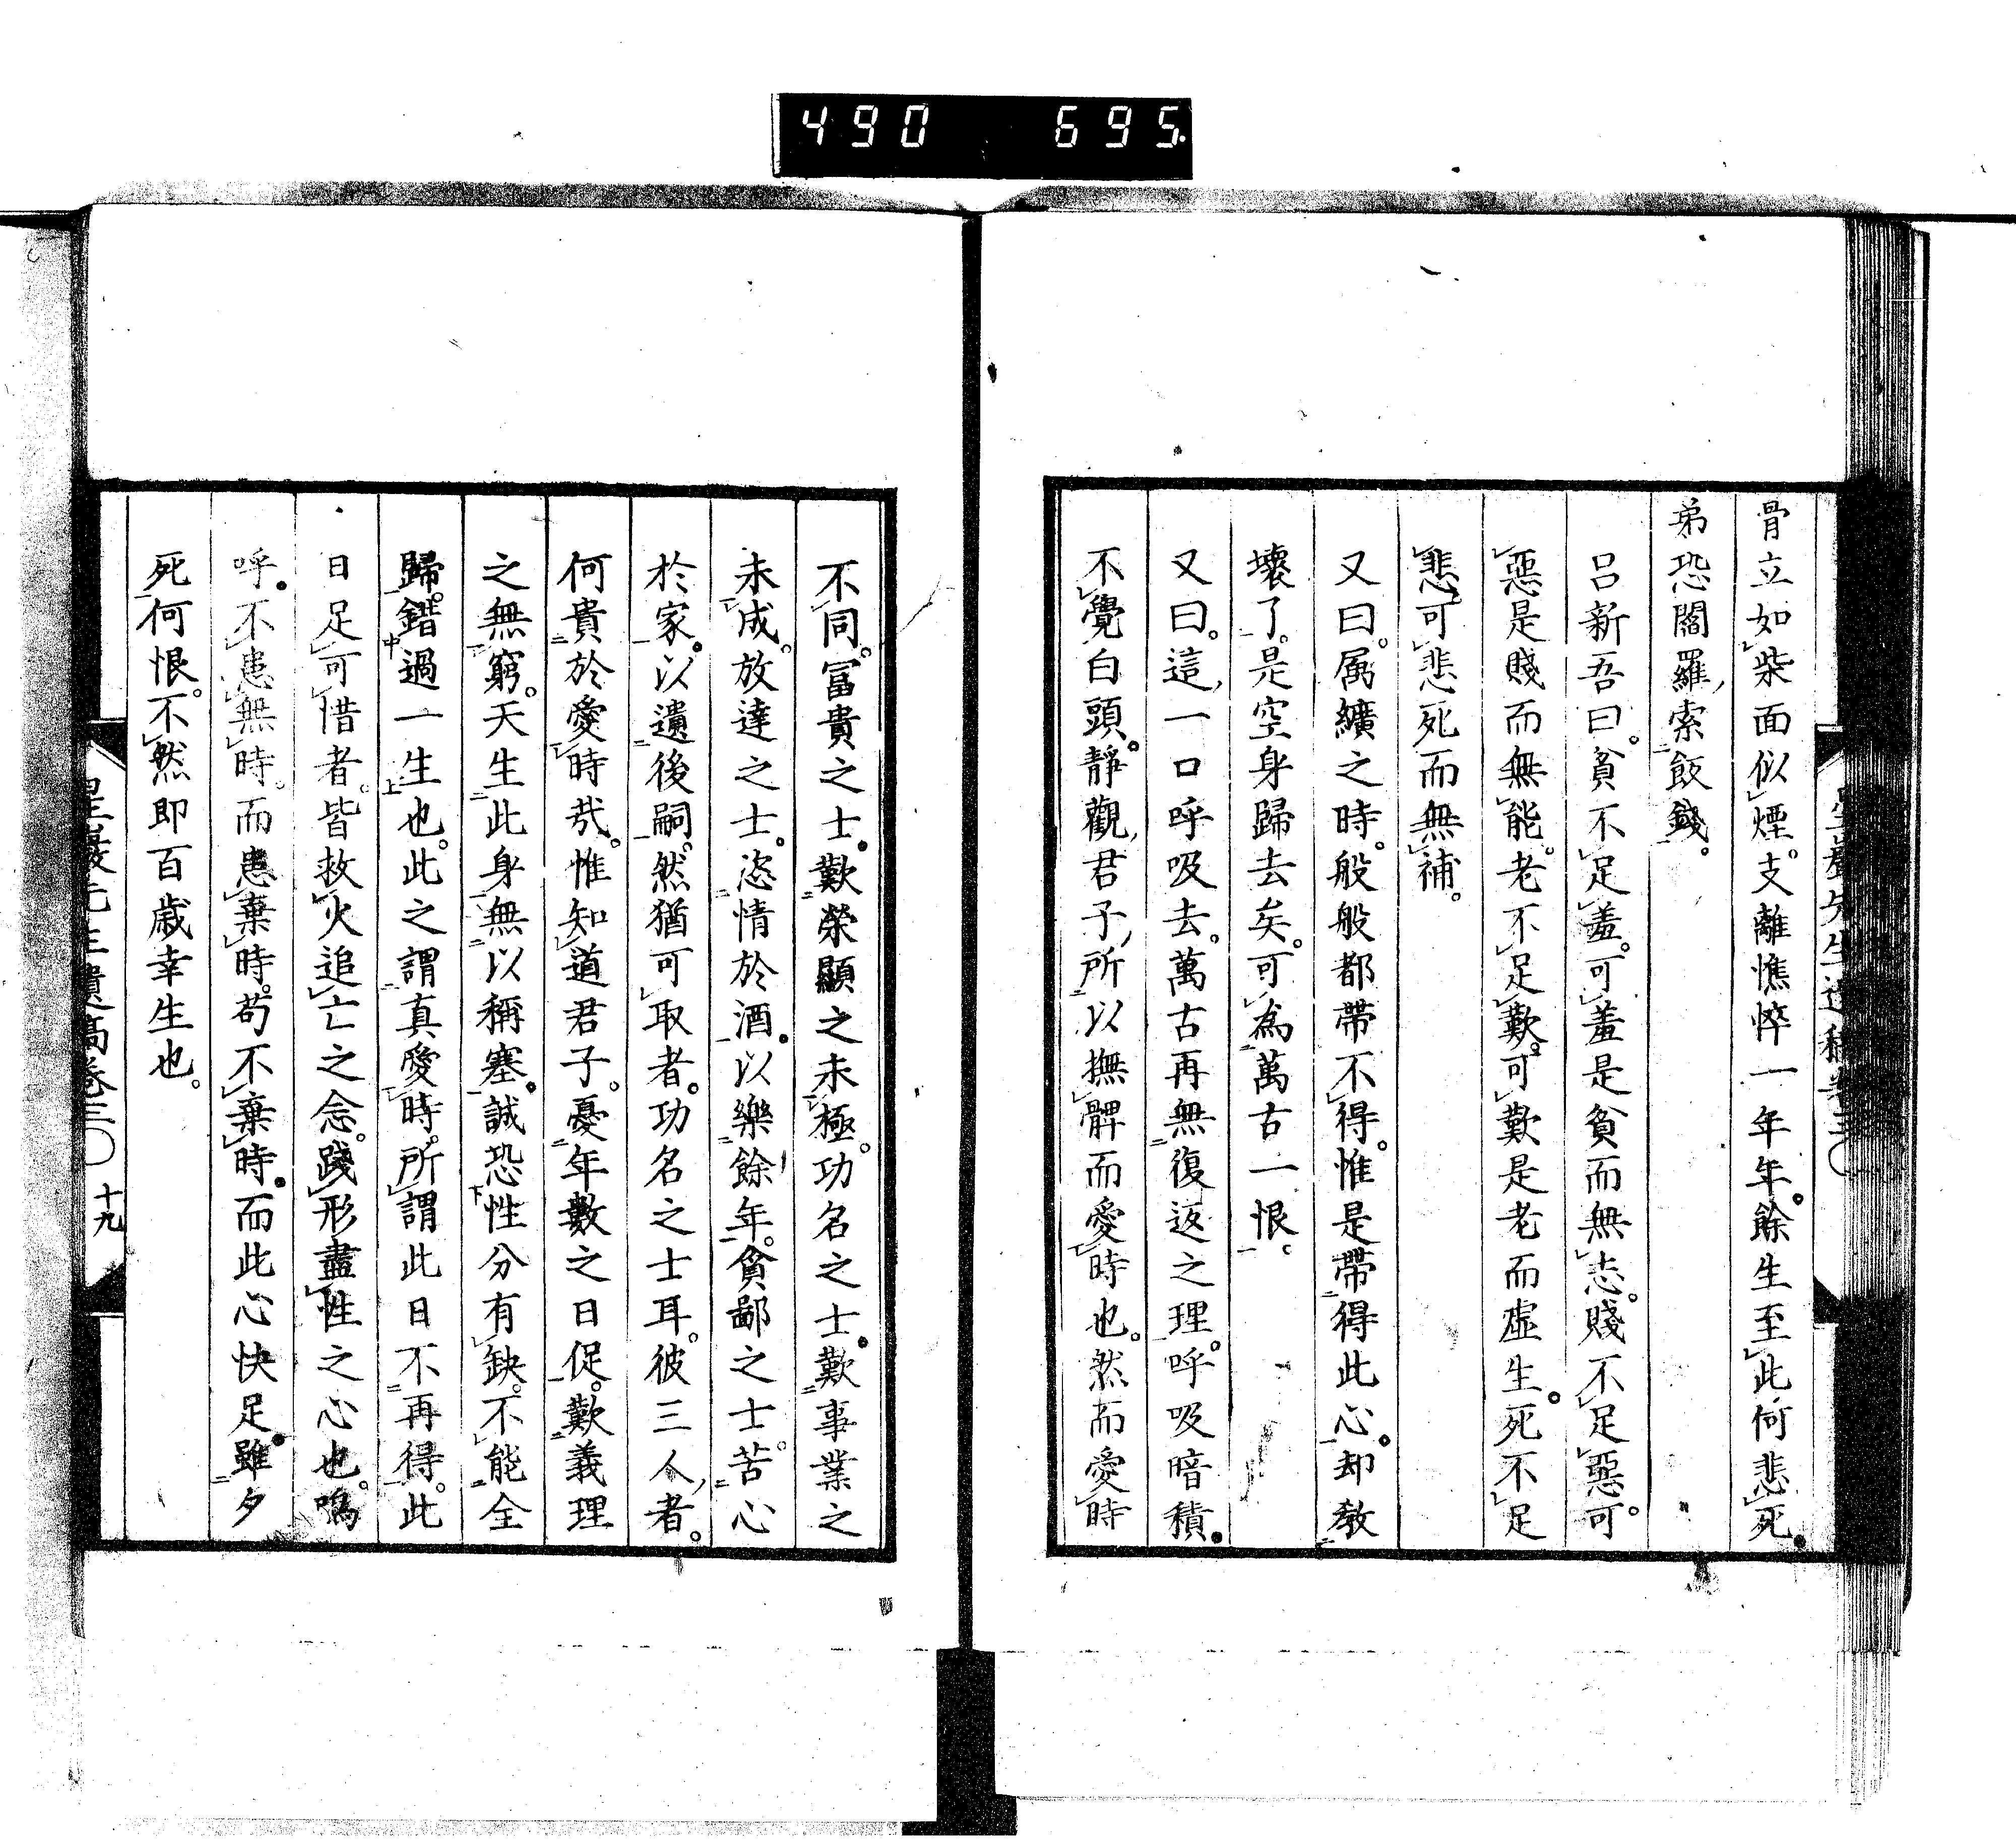 490 695
骨立如柴面似煙。支離憔悴一年年。餘生至此何悲死。
弟恐閻羅索飯錢。
呂新吾曰。貧不足羞。可羞是貧而無志。賤不足惡。可
惡是賤而無能。老不足歎。可歎是老而虛生。死不足
悲。可悲死而無補。
又曰。属纊之時。般般都帶不得。惟是帶得此心。却教
壞了。是空身歸去矣。可為萬古一恨。
又曰。這一口呼吸去。萬古再無復返之理。呼吸暗積。
不覺白頭。靜觀君子所以撫髀而愛時也。然而愛時
不同。富貴之士。歎榮顯之未極。功名之士。歎事業之
未成。放達之士。恣情於酒。以樂餘年。貧鄙之士。苦心
於家。以遺後嗣。然猶可取者。功名之士耳。彼三人者。
何貴於愛時哉。惟知道君子。憂年數之日促。歎義理
之無窮。天生此身無以稱塞。誠恐性分有缺。不能全
歸。錯過一生也。此之謂真愛時。所謂此日不再得。此
日足可惜者。皆救火追亡之念。踐形盡性之心也。嗚
呼。不患無時。而患棄時。苟不棄時。而此心快足。雖夕
死何恨。不然即百歲幸生也。
星巖先生遺稿卷三 十九